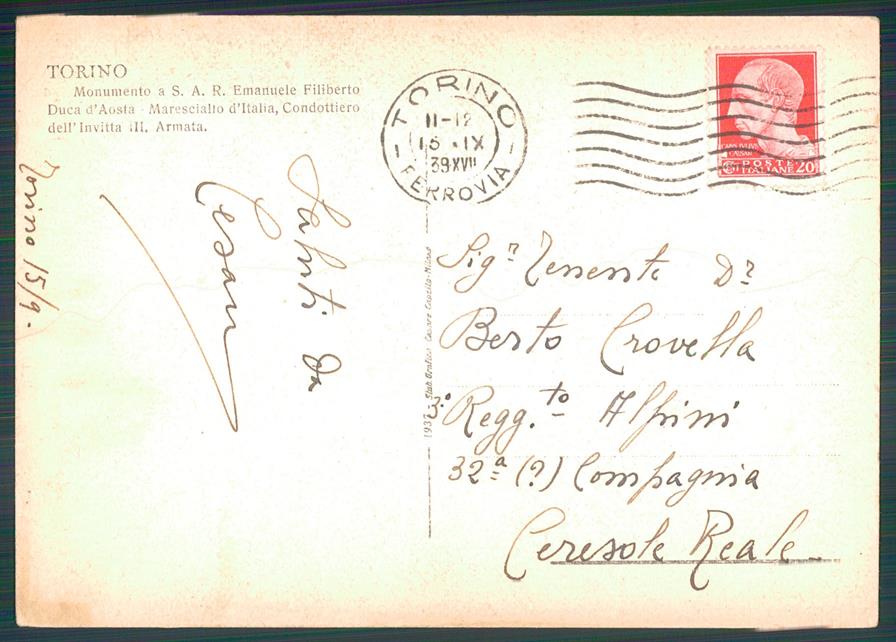 TORINO
Monumento a S. A. R. Emanuele Filiberto
Duca d'Aosta - Maresciallo d'Italia, Condottiero
dell'Invitta III. Armata.
TORINO
11-12
15 . IX
39 XVII
FERROVIA
POSTE
ITALIANE 20
Torino 15/9.
Saluti da
Cesare
Sig.r Tenente Dr
Berto Crovella
3° Regg.to Alpini
32a (?) Compagnia
Ceresole Reale